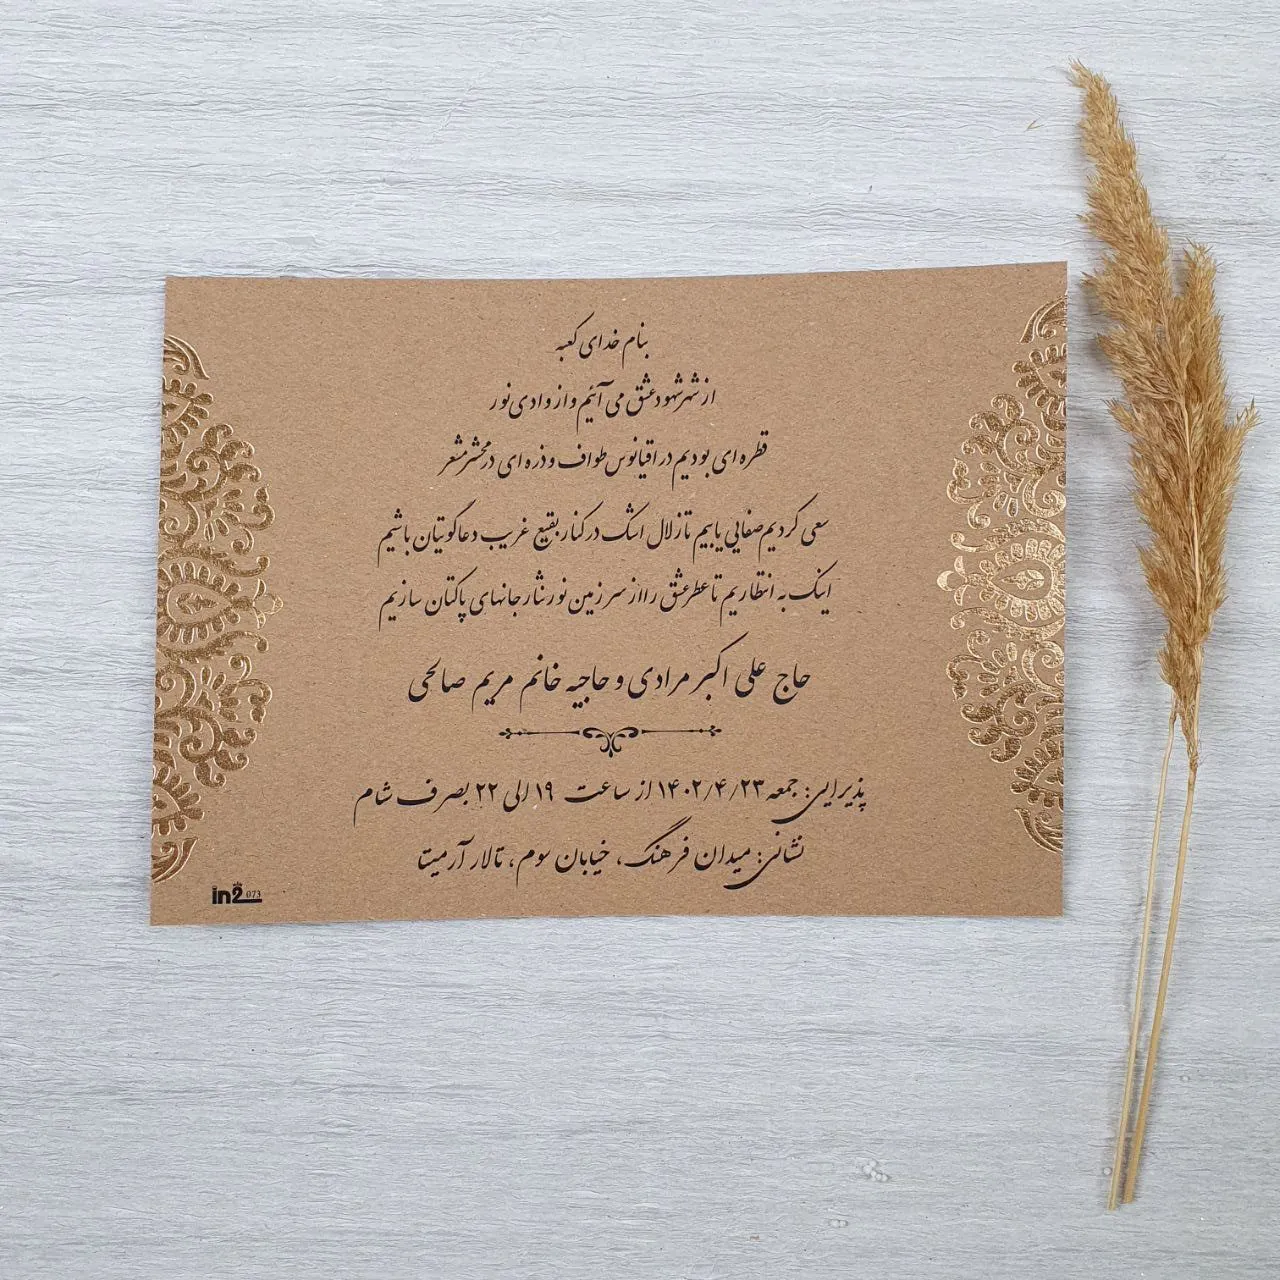 بنام خدای کعبه
از شهر شهود عشق می آئیم و از وادی نور
قطره ای بودیم در اقیانوس طواف و ذره ای در محشر مشعر
سعی کردیم صفایی یابیم تا زلال اشک در کنار بقیع غریب دعاگویتان باشیم
اینک به انتظاریم تا عطر عشق را از سرزمین نور نثار جانهای پاکتان سازیم
حاج علی اکبر مرادی و حاجیه خانم مریم صالحی
پذیرایی: جمعه ۱۴۰۲/۴/۲۳ از ساعت ۱۹ الی ۲۲ بصرف شام
نشانی: میدان فرهنگ، خیابان سوم، تالار آرمیتا
in2 073